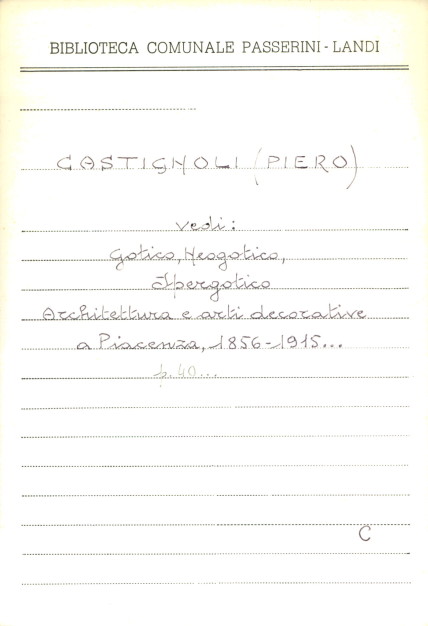 BIBLIOTECA COMUNALE PASSERINI - LANDI
CASTIGNOLI (PIERO)
vedi:
Gotico, Neogotico,
Ipergotico
Architettura e arti decorative
a Piacenza, 1856-1915...
p. 40...
C